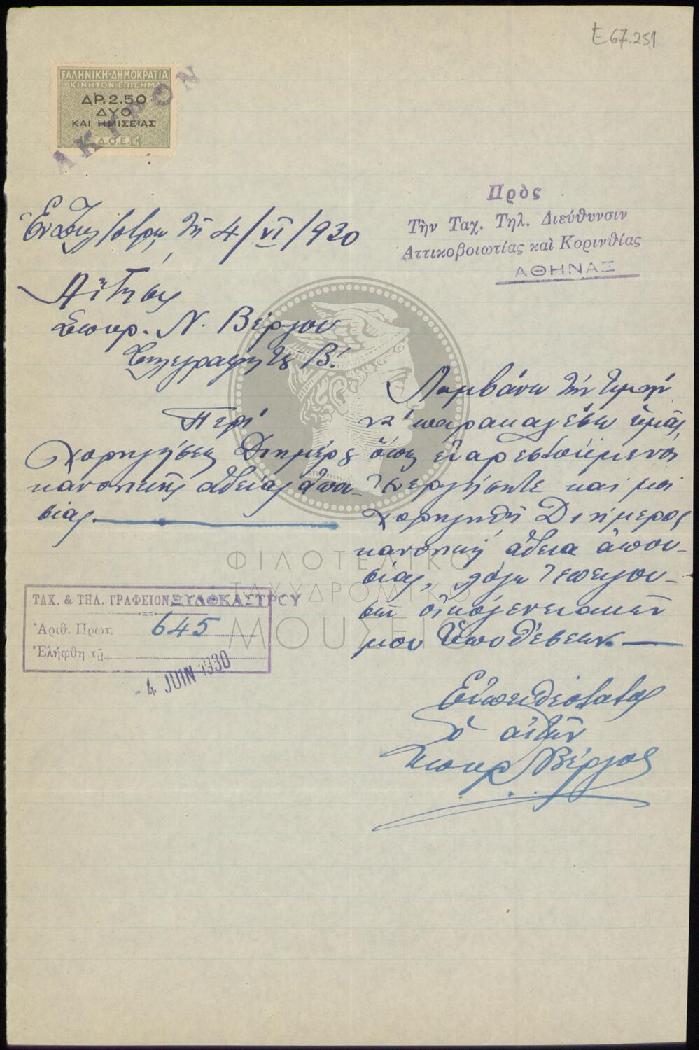 Ε 67.251
ΕΛΛΗΝΙΚΗ ΔΗΜΟΚΡΑΤΙΑ
ΚΙΝΗΤΟΝ ΕΠΙΣΗΜΑ
ΔΡ. 2.50
ΔΥΟ
ΚΑΙ ΗΜΙΣΕΙΑΣ
ΑΚΥΡΟΝ
Πρὸς
Τὴν Ταχ. Τηλ. Διεύθυνσιν
Ἀττικοβοιωτίας καὶ Κορινθίας
ΑΘΗΝΑΣ
Ἐν τῇ 4/VI/930
Αἴτησις
Σπυρ. Ν. Βέργου
Τηλεγραφητοῦ Β'.
Περὶ
χορηγήσεως διημέρου
κανονικῆς ἀδείας ἀπου-
σίας
Λαμβάνω τὴν τιμὴν
νὰ παρακαλέσω ὑμᾶς
ὅπως εὐαρεστούμενοι
ἐνεργήσητε καὶ μοὶ
χορηγηθῇ διήμερος
κανονικὴ ἄδεια ἀπου-
σίας, λόγῳ ἐπειγου-
σῶν οἰκογενειακῶν
μου ὑποθέσεων
Εὐπειθέστατος
ὁ αἰτῶν
Σπυρ Ν Βέργος
ΤΑΧ. & ΤΗΛ. ΓΡΑΦΕΙΟΝ ΞΥΛΟΚΑΣΤΡΟΥ
Ἀριθ. Πρωτ. 645
Ἐλήφθη τῇ
- 4 JUIN 1930
ΦΙΛΟΤΕΛΙΚΟ
ΤΑΧΥΔΡΟΜΙΚΟ
ΜΟΥΣΕΙΟ